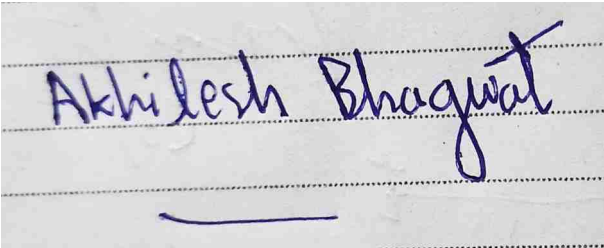 Akhilesh Bhagwat